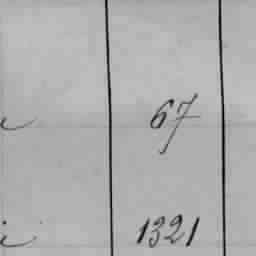 67
1321